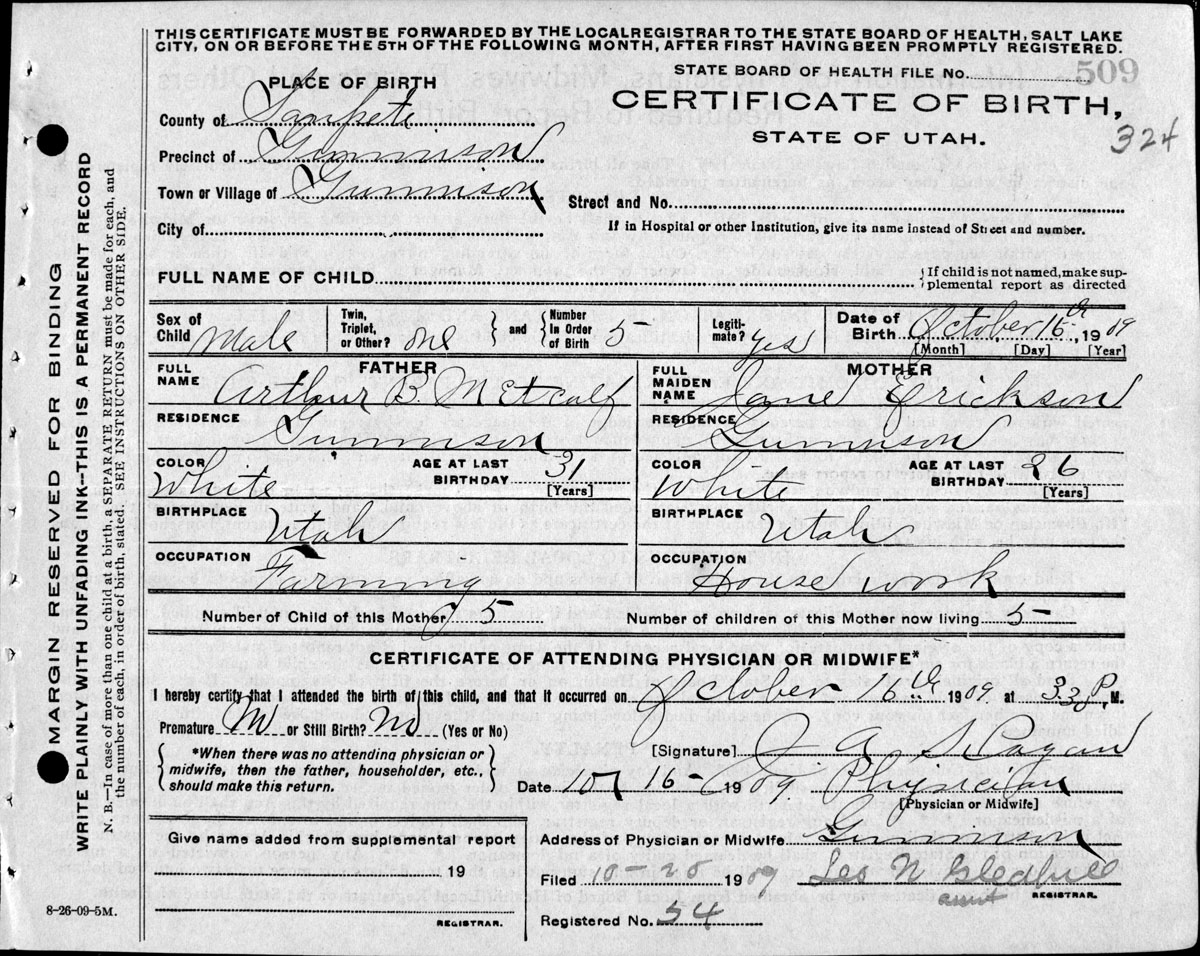 THIS CERTIFICATE MUST BE FORWARDED BY THE LOCALREGISTRAR TO THE STATE BOARD OF HEALTH, SALT LAKE
CITY, ON OR BEFORE THE 5TH OF THE FOLLOWING MONTH, AFTER FIRST HAVING BEEN PROMPTLY REGISTERED.
STATE BOARD OF HEALTH FILE No. 509
PLACE OF BIRTH
CERTIFICATE OF BIRTH,
STATE OF UTAH.
324
County of Sanpete
Precinct of Gunnison
Town or Village of Gunnison
Street and No.
City of
If in Hospital or other Institution, give its name instead of Street and number.
FULL NAME OF CHILD
If child is not named, make sup-
plemental report as directed
Sex of Child Male
Twin, Triplet, or Other? one
and
Number In Order of Birth 5
Legiti-mate? yes
Date of Birth October 16th, 1909
[Month] [Day] [Year]
FATHER
FULL NAME Arthur B. Metcalf
RESIDENCE Gunnison
COLOR White
AGE AT LAST BIRTHDAY 31
[Years]
BIRTHPLACE Utah
OCCUPATION Farming
MOTHER
FULL MAIDEN NAME Jane Erickson
RESIDENCE Gunnison
COLOR White
AGE AT LAST BIRTHDAY 26
[Years]
BIRTHPLACE Utah
OCCUPATION House work
Number of Child of this Mother 5
Number of children of this Mother now living 5
CERTIFICATE OF ATTENDING PHYSICIAN OR MIDWIFE*
I hereby certify that I attended the birth of this child, and that it occurred on October 16th 1909 at P, M.
Premature or Still Birth? No (Yes or No)
*When there was no attending physician or
midwife, then the father, householder, etc.,
should make this return.
[Signature] J. A. Hagan
Date 10/16- 1909 Physician
[Physician or Midwife]
Give name added from supplemental report
19
REGISTRAR.
Address of Physician or Midwife Gunnison
Filed 10 25 1909 Les N Gledhill
asst REGISTRAR.
Registered No. 54
8-26-09-5M.
MARGIN RESERVED FOR BINDING
WRITE PLAINLY WITH UNFADING INK--THIS IS A PERMANENT RECORD
N. B.—In case of more than one child at a birth, a SEPARATE RETURN must be made for each, and
the number of each, in order of birth, stated. SEE INSTRUCTIONS ON OTHER SIDE.